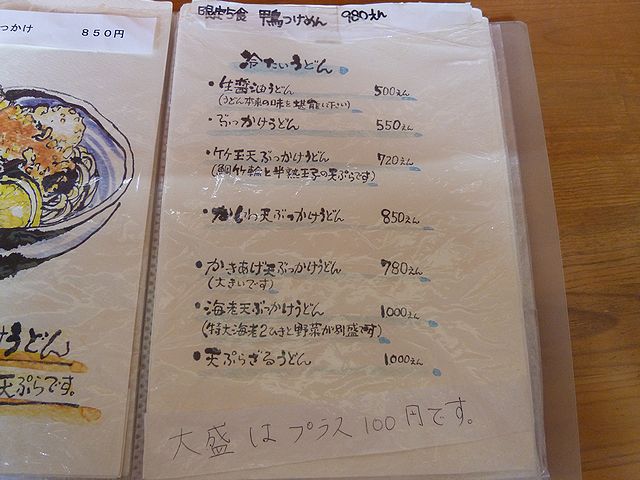 っかけ 850円
けうどん
天ぷらです。
限定5食 鴨つけめん 980えん
冷たいうどん
・生醤油うどん 500えん
(うどん本来の味を堪能下さい)
・ぶっかけうどん 550えん
・竹玉天ぶっかけうどん 720えん
(鯛竹輪と半熟玉子の天ぷらです)
・かしわ天ぶっかけうどん 850えん
・かきあげ天ぶっかけうどん 780えん
(大きいです)
・海老天ぶっかけうどん 1000えん
(特大海老2ひきと野菜が別盛です)
・天ぷらざるうどん 1000えん
大盛はプラス100円です。